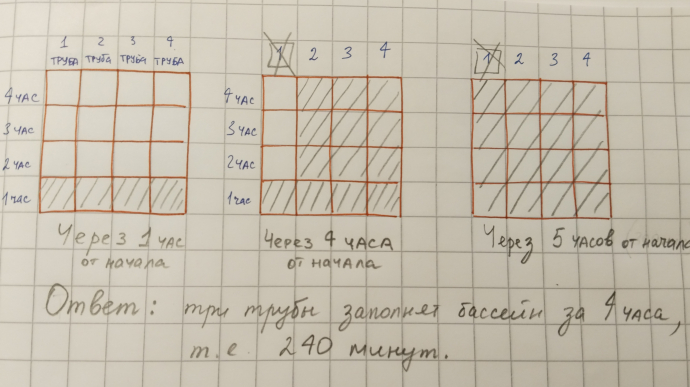 1 2 3 4
ТРУБА ТРУБА ТРУБА ТРУБА
4 ЧАС
3 ЧАС
2 ЧАС
1 ЧАС
Через 1 час
от начала
1 2 3 4
4 ЧАС
3 ЧАС
2 ЧАС
1 ЧАС
Через 4 часа
от начала
1 2 3 4
Через 5 часов от начала
Ответ: три трубы заполнят бассейн за 4 часа,
т.е. 240 минут.